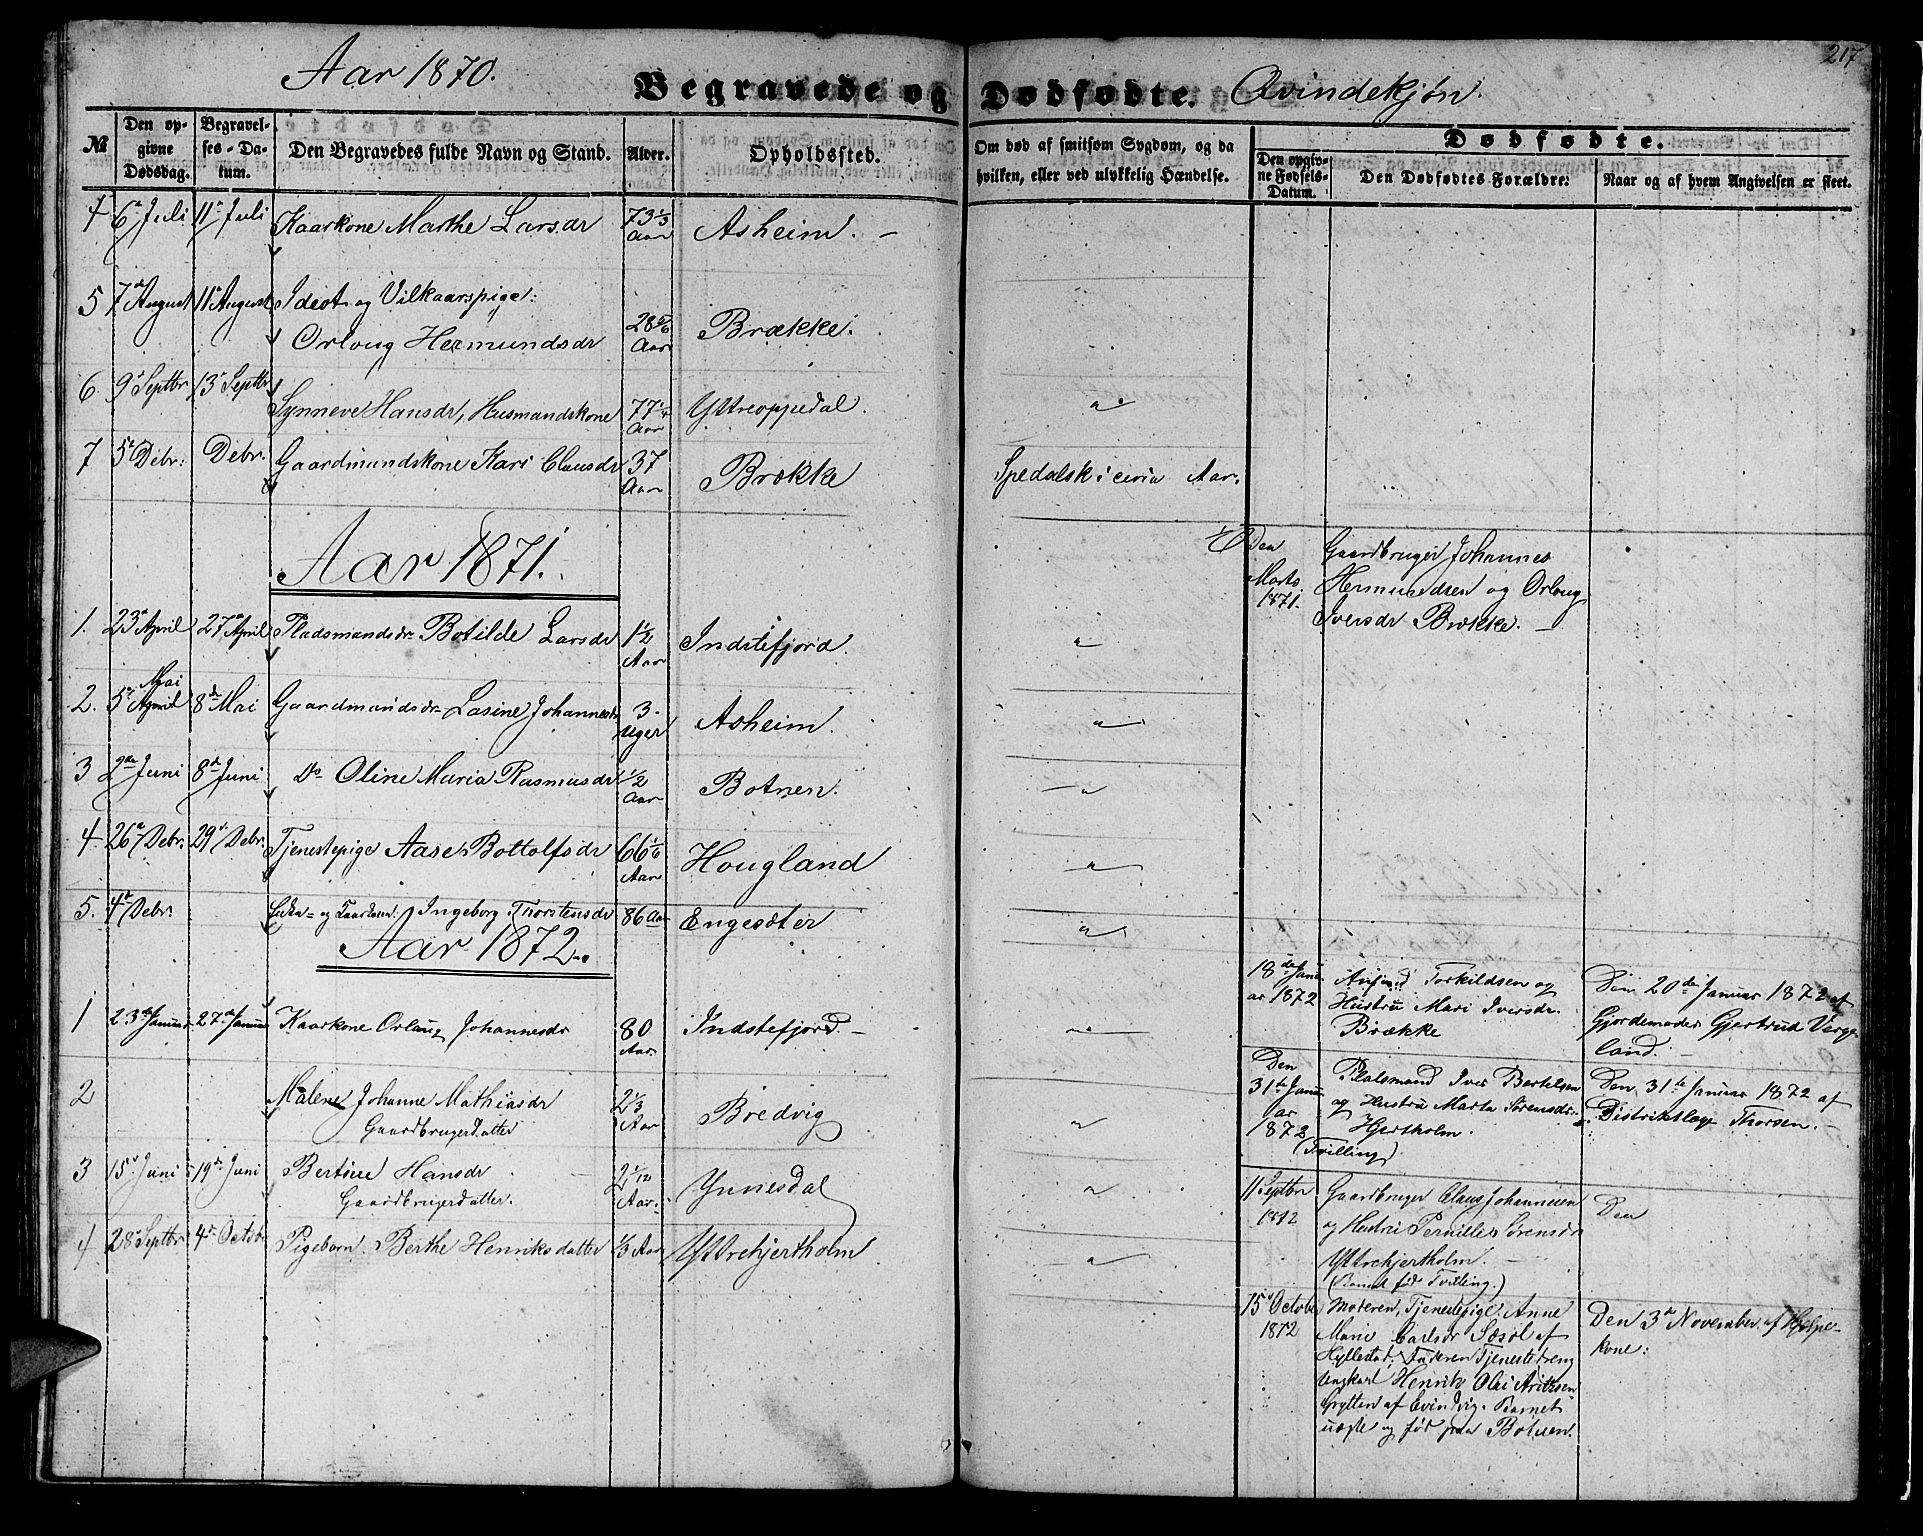 217
Aar 1870.
Begravede og Dødfødte. Qvindekjøn.
№
Den opgivne Dødsdag.
Begravelses-Datum.
Den Begravedes fulde Navn og Stand.
Alder.
Opholdssted.
Om død af smitsom Sygdom, og da hvilken, eller ved ulykkelig Hændelse.
Dødfødte.
Den opgivne Fødsels-Datum.
Den Dødfødtes Forældre:
Naar og af hvem Angivelsen er skeet.
4 6te Juli 11te Juli Kaarkone Marthe Larsdr 73 1/3 Aar Asheim. –
5 7de August 11te August Ideot og Vilkaarspige:
Orloug Hermundsdr 28 5/6 Aar Brække.
6 9de Septbr 13de Septbr Synneve Hansdr, Husmandskone 77 1/4 Aar Yttreoppedal. "
7 5te Debr: Debr. Gaardmandskone Kari Clausdr 37 Aar Brække Spedalsk i Aar.
Aar 1871.
Den Marts 1871. Gaardbruger Johannes
Hermundsen og Orloug
Iversdr Brække. –
1. 23de April 27de April Pladsmandsdr Botilde Larsdr 1 1/2 Aar Indstefjord. "
2. 5te April Mai 8de Mai Gaardmandsdr Lasine Johannesdr 3 uger Asheim. "
3 2den Juni 8de Juni Do Oline Maria Rasmusdr 1/2 Aar Botnen. "
4 26de Debr: 29de Debr. Tjenestepige Aase Bottolfsdr 66 1/6 Aar Hougland "
5. 4de Debr: Enke- og Ingeborg Thorstensdr 86 Aar Engesæter "
Aar 1872.
1 23de Januar 27de Januar Kaarkone Orloug Johannesdr 80 Aar. Indstefjord – "
18de Januar 1872 Torkildsen og
Hustru Mari Iversdr.
Brække
Den 20de Januar 1872 af
Gjordemoder Gjertrud Verge-
land. –
2 Malene Johanne Mathiasdr
Gaardbrugerdatter 2 1/3 Aar Bredvig "
Den 31te Januar 1872
Pladsmand Iver Bertelsen
og Hustru Marta Sørensdr.
Hjertholm.
(Tvilling)
Den 31te Januar 1872 af
Distriktslæge Thorsen. –
3 15de Juni 19de Juni Bertine Hansdr
Gaardbrugerdatter. 2 1/12 Aar. Ynnesdal "
11 Septbr 1872 Gaardbruger Claus Johannesen
og Hustru Pernille Sørensdr
Yttrehjertholm.
(Barnet fød Tvilling.)
Den
4 28de Septbr 4de Octobr Pigebarn Berthe Henriksdatter 1/3 Aar Yttrehjertholm "
15de Octobr 1872 Moderen, Tjenestepige Anne
Marie Carlsdr Sæsol af
Hyllestad, Faderen Tjenestedreng
Ungkarl Henrik Olai
Grytten af Evindvig. Barnet
uægte og fød paa Botnen.
Den 3de November af Hjelpe-
kone: